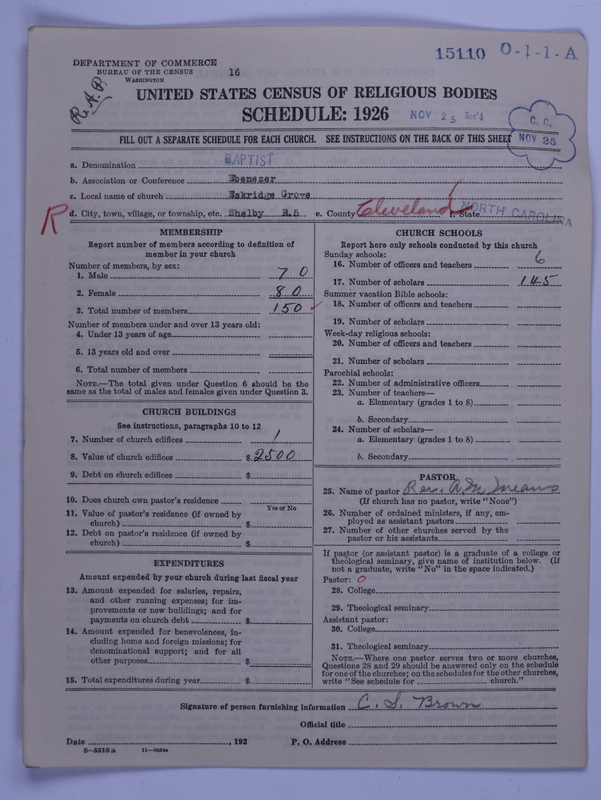 15110 O-1-1-A
DEPARTMENT OF COMMERCE
BUREAU OF THE CENSUS
WASHINGTON
16
R.A.P.
UNITED STATES CENSUS OF RELIGIOUS BODIES
SCHEDULE: 1926
NOV 25 Rec'd
C. C.
NOV 26
FILL OUT A SEPARATE SCHEDULE FOR EACH CHURCH. SEE INSTRUCTIONS ON THE BACK OF THIS SHEET
a. Denomination BAPTIST
b. Association or Conference Ebenezer
c. Local name of church Eskridge Grove
R d. City, town, village, or township, etc. Shelby R.5 e. County Cleveland f. State NORTH CAROLINA
MEMBERSHIP
Report number of members according to definition of
member in your church
Number of members, by sex:
1. Male 70
2. Female 80
3. Total number of members 150
Number of members under and over 13 years old:
4. Under 13 years of age
5. 13 years old and over
6. Total number of members
NOTE.—The total given under Question 6 should be the
same as the total of males and females given under Question 3.
CHURCH BUILDINGS
See instructions, paragraphs 10 to 12
7. Number of church edifices 1
8. Value of church edifices $ 2500
9. Debt on church edifices $
10. Does church own pastor's residence
Yes or No
11. Value of pastor's residence (if owned by
church) $
12. Debt on pastor's residence (if owned by
church) $
EXPENDITURES
Amount expended by your church during last fiscal year
13. Amount expended for salaries, repairs,
and other running expenses; for im-
provements or new buildings; and for
payments on church debt $
14. Amount expended for benevolences, in-
cluding home and foreign missions; for
denominational support; and for all
other purposes $
15. Total expenditures during year $
CHURCH SCHOOLS
Report here only schools conducted by this church
Sunday schools:
16. Number of officers and teachers 6
17. Number of scholars 145
Summer vacation Bible schools:
18. Number of officers and teachers
19. Number of scholars
Week-day religious schools:
20. Number of officers and teachers
21. Number of scholars
Parochial schools:
22. Number of administrative officers
23. Number of teachers—
a. Elementary (grades 1 to 8)
b. Secondary
24. Number of scholars—
a. Elementary (grades 1 to 8)
b. Secondary
PASTOR
25. Name of pastor Rev. A. M. Means
(If church has no pastor, write "None")
26. Number of ordained ministers, if any, em-
ployed as assistant pastors
27. Number of other churches served by the
pastor or his assistants
If pastor (or assistant pastor) is a graduate of a college or
theological seminary, give name of institution below. (If
not a graduate, write "No" in the space indicated.)
Pastor: 0
28. College
29. Theological seminary
Assistant pastor:
30. College
31. Theological seminary
NOTE.—Where one pastor serves two or more churches,
Questions 28 and 29 should be answered only on the schedule
for one of the churches; on the schedules for the other churches,
write "See schedule for church."
Signature of person furnishing information C. S. Brown
Official title
Date , 192 P. O. Address